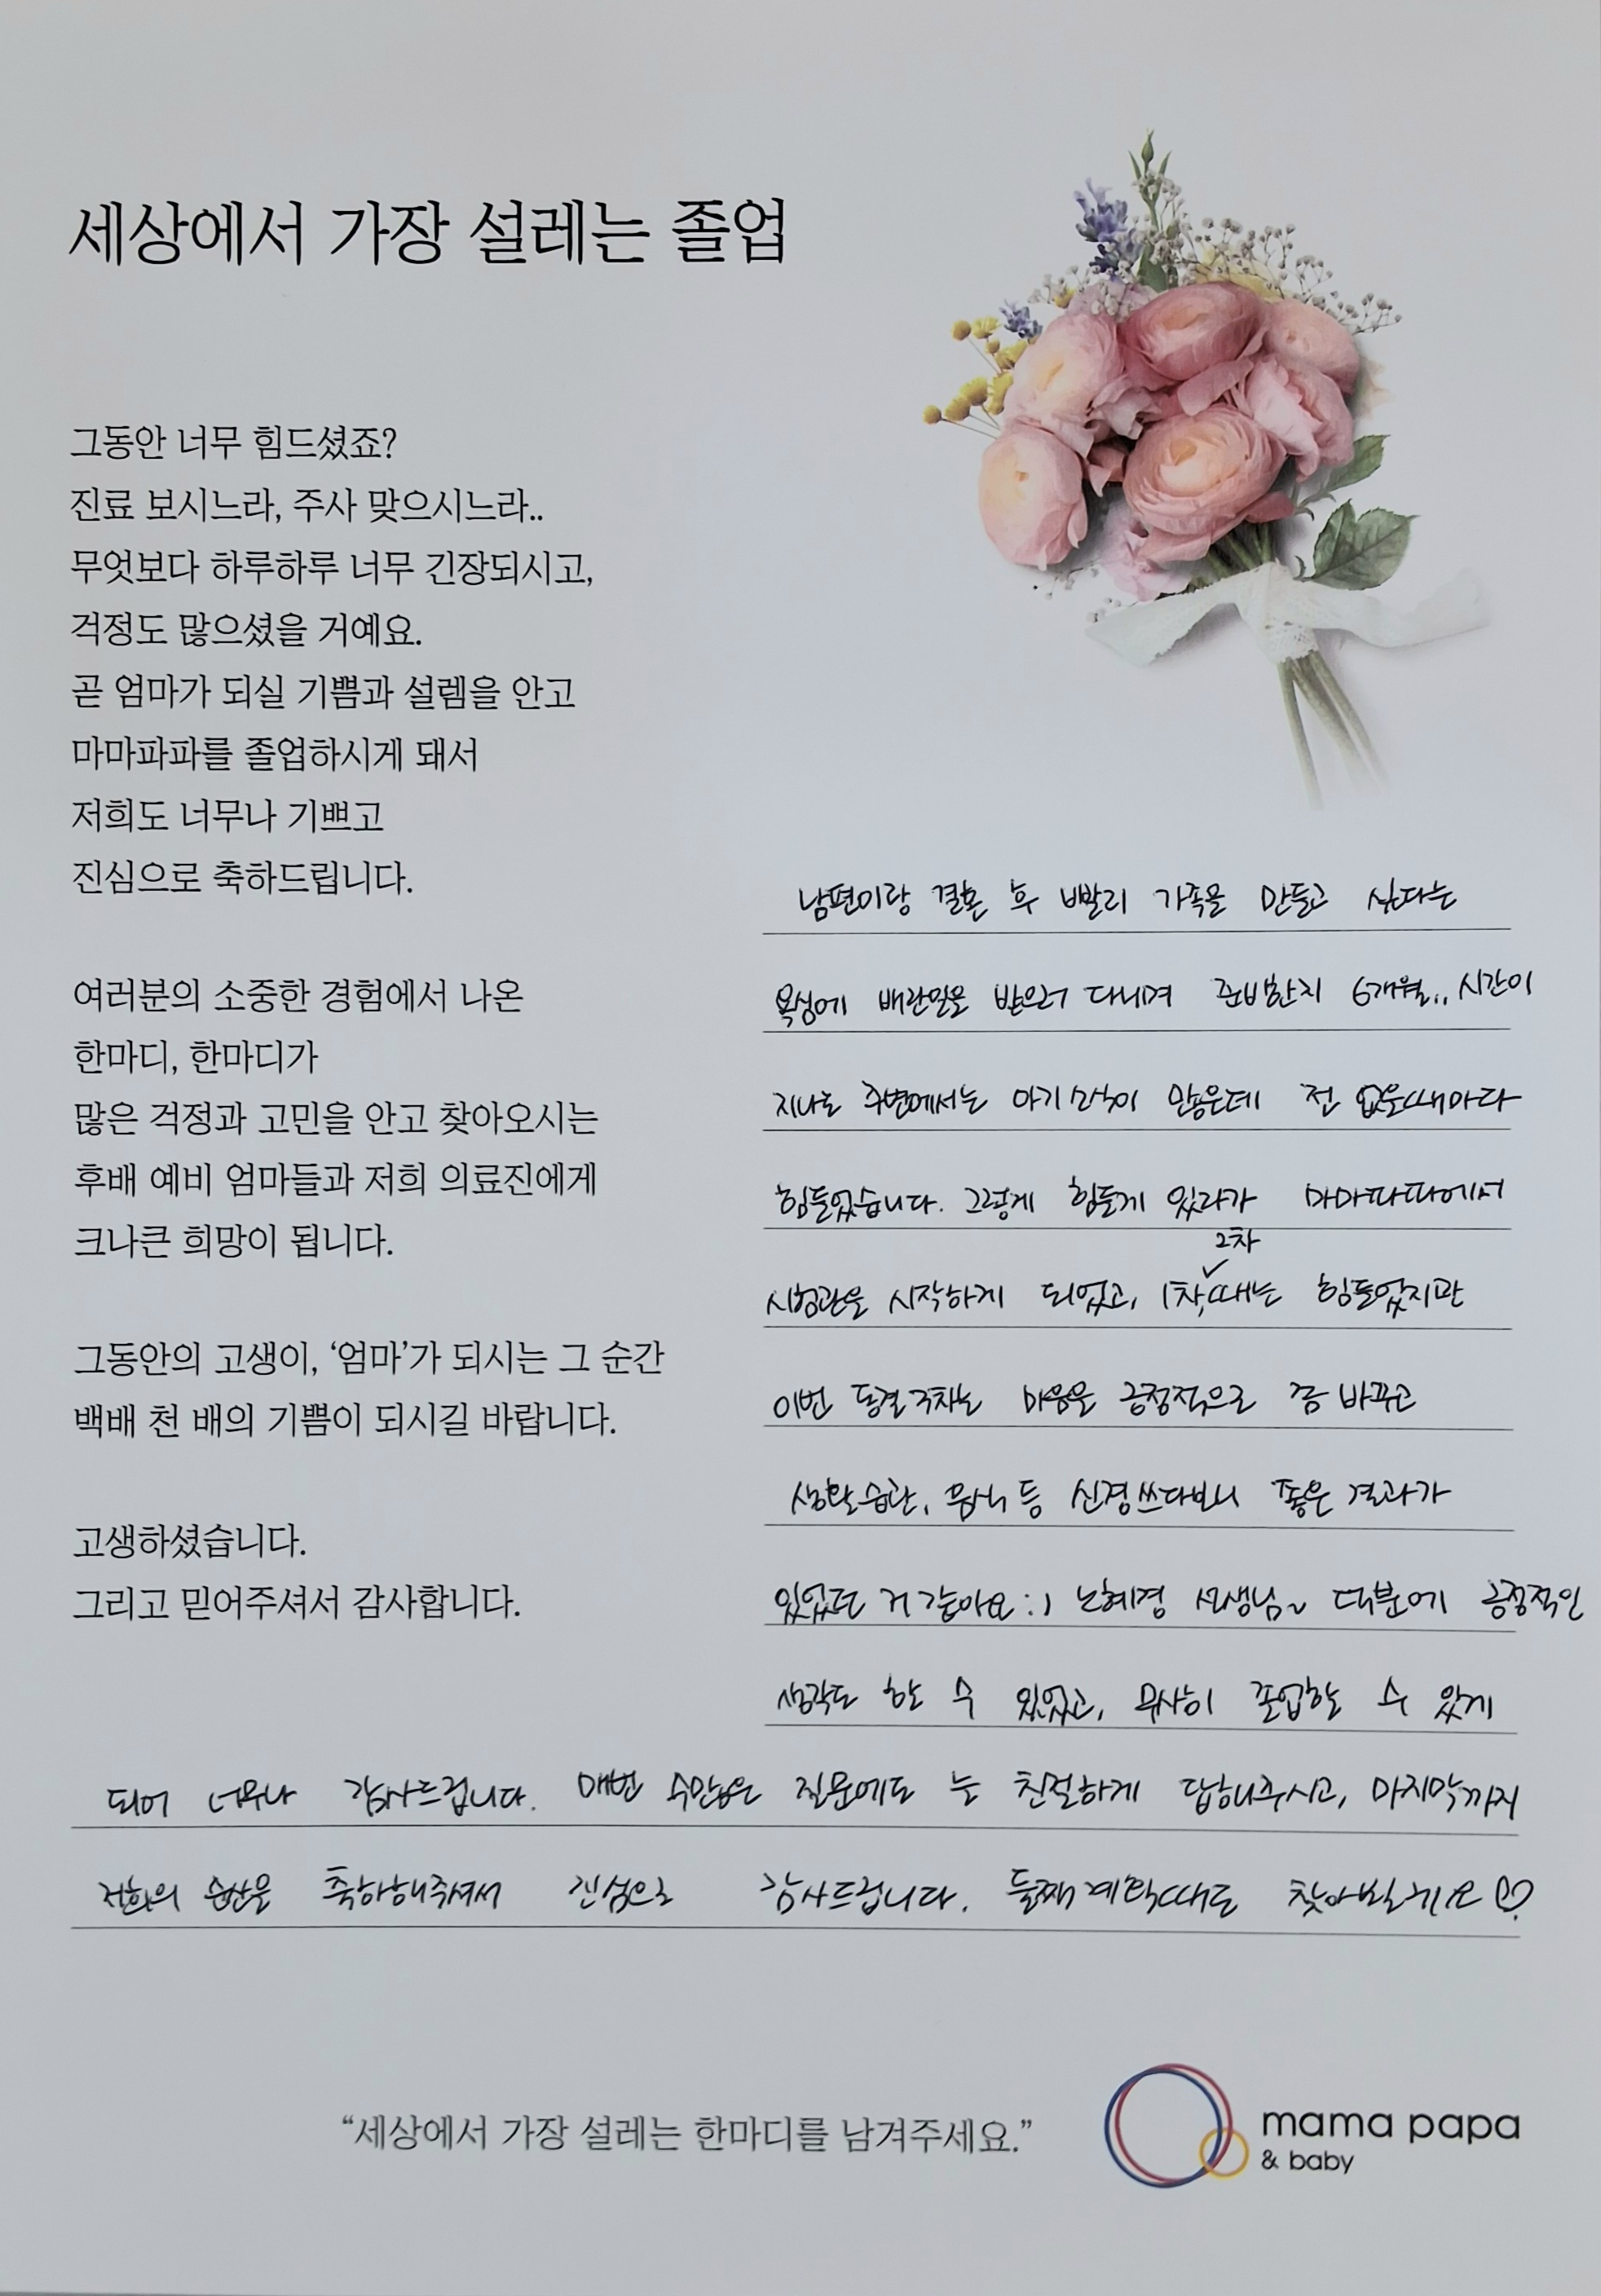 세상에서 가장 설레는 졸업
그동안 너무 힘드셨죠?
진료 보시느라, 주사 맞으시느라..
무엇보다 하루하루 너무 긴장되시고,
걱정도 많으셨을 거예요.
곧 엄마가 되실 기쁨과 설렘을 안고
마마파파를 졸업하시게 돼서
저희도 너무나 기쁘고
진심으로 축하드립니다.
여러분의 소중한 경험에서 나온
한마디, 한마디가
많은 걱정과 고민을 안고 찾아오시는
후배 예비 엄마들과 저희 의료진에게
크나큰 희망이 됩니다.
그동안의 고생이, ‘엄마’가 되시는 그 순간
백배 천 배의 기쁨이 되시길 바랍니다.
고생하셨습니다.
그리고 믿어주셔서 감사합니다.
남편이랑 결혼 후 빨리 가족을 만들고 싶다는
욕심에 배란일을 받으러 다니며 준비한지 6개월.. 시간이
지나는 주변에서는 아기 소식이 많은데 전 없을때마다
힘들었습니다. 그렇게 힘들게 있다가 마마파파에서
시험관을 시작하게 되었고, 1차, 2차 때는 힘들었지만
이번 동결 3차는 마음을 긍정적으로 좀 바꾸고
생활습관, 음식 등 신경쓰다보니 좋은 결과가
있었던 거 같아요 :) 노혜경 선생님~ 덕분에 긍정적인
생각도 할 수 있었고, 무사히 졸업할 수 있게
되어 너무나 감사드립니다. 매번 수많은 질문에도 늘 친절하게 답해주시고, 마지막까지
저희의 순산을 축하해주셔서 진심으로 감사드립니다. 둘째 계획때도 찾아뵐게요 ♡
“세상에서 가장 설레는 한마디를 남겨주세요.”
mama papa
& baby